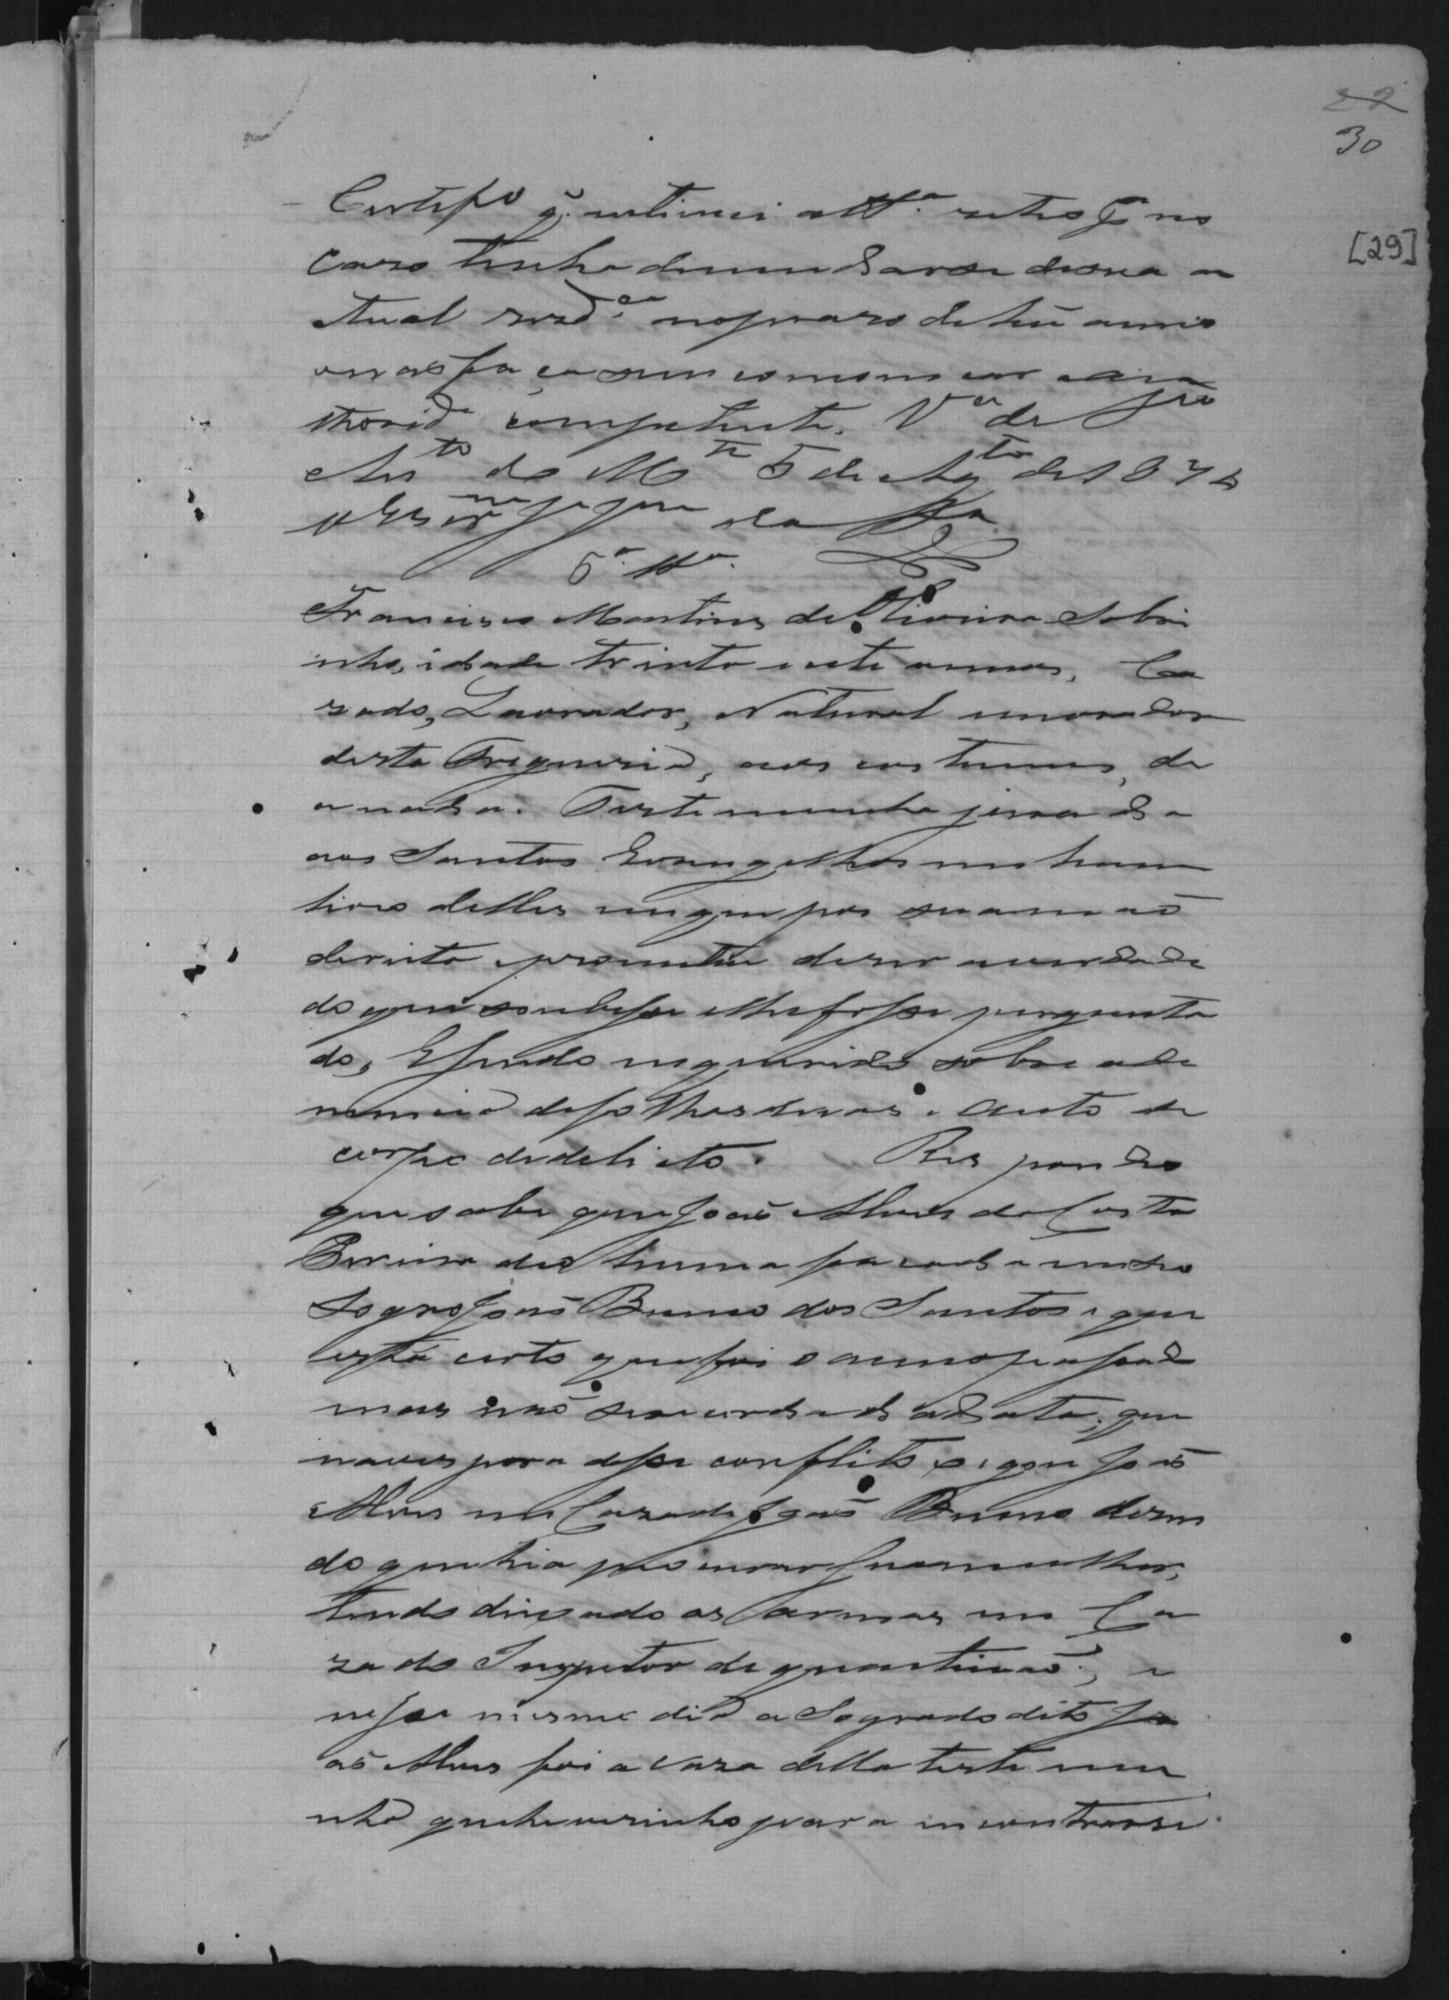 29
30
[29]
Certifico q. intimei a tt.ª retro p.ª no
cazo tenha de mudarse desua a
ctual rezd.ca no prazo de hũ anno
o não faça sem comonicar a au
thorid.e competente. V.ª de São
Ant.to do M.te 5 de Ag.to de 187
o Escr.m
5.ª tt.ª
Francisco Martins de Oliveira Sobri
nho, idade trinta e sete annos, Ca
zado, Lavrador, Natural e morador
desta Freguesia, aos costumes, di
ce nada. Testemunha jurada
aos Santos Evangelhos em hum
livro delles em que pos sua mão
dereita e prometeu dezer a verdade
do que soubesse e lhe fosse pergunta
do, E sendo enquerido sobre a de
nuncia de folhas duas e auto de
corpo de delicto. Respondeo
que sabe que João Alves da Costa
Pereira deo huma facada em seo
Sogro João Bueno dos Santos, e que
está certo que foi o anno passado
mas não se recorda da data, que
naves pora desse conflito, que João
Alves na Caza de João Bueno dezen
do que hia procurar sua mulher,
tendo deixado as armas em Ca
za do Inspetor de quarteirão, e
nesse mesmo dia a Sogra do dito Jo
ão Alves foi a caza delle testemu
nha que he vezinho para encontrarse